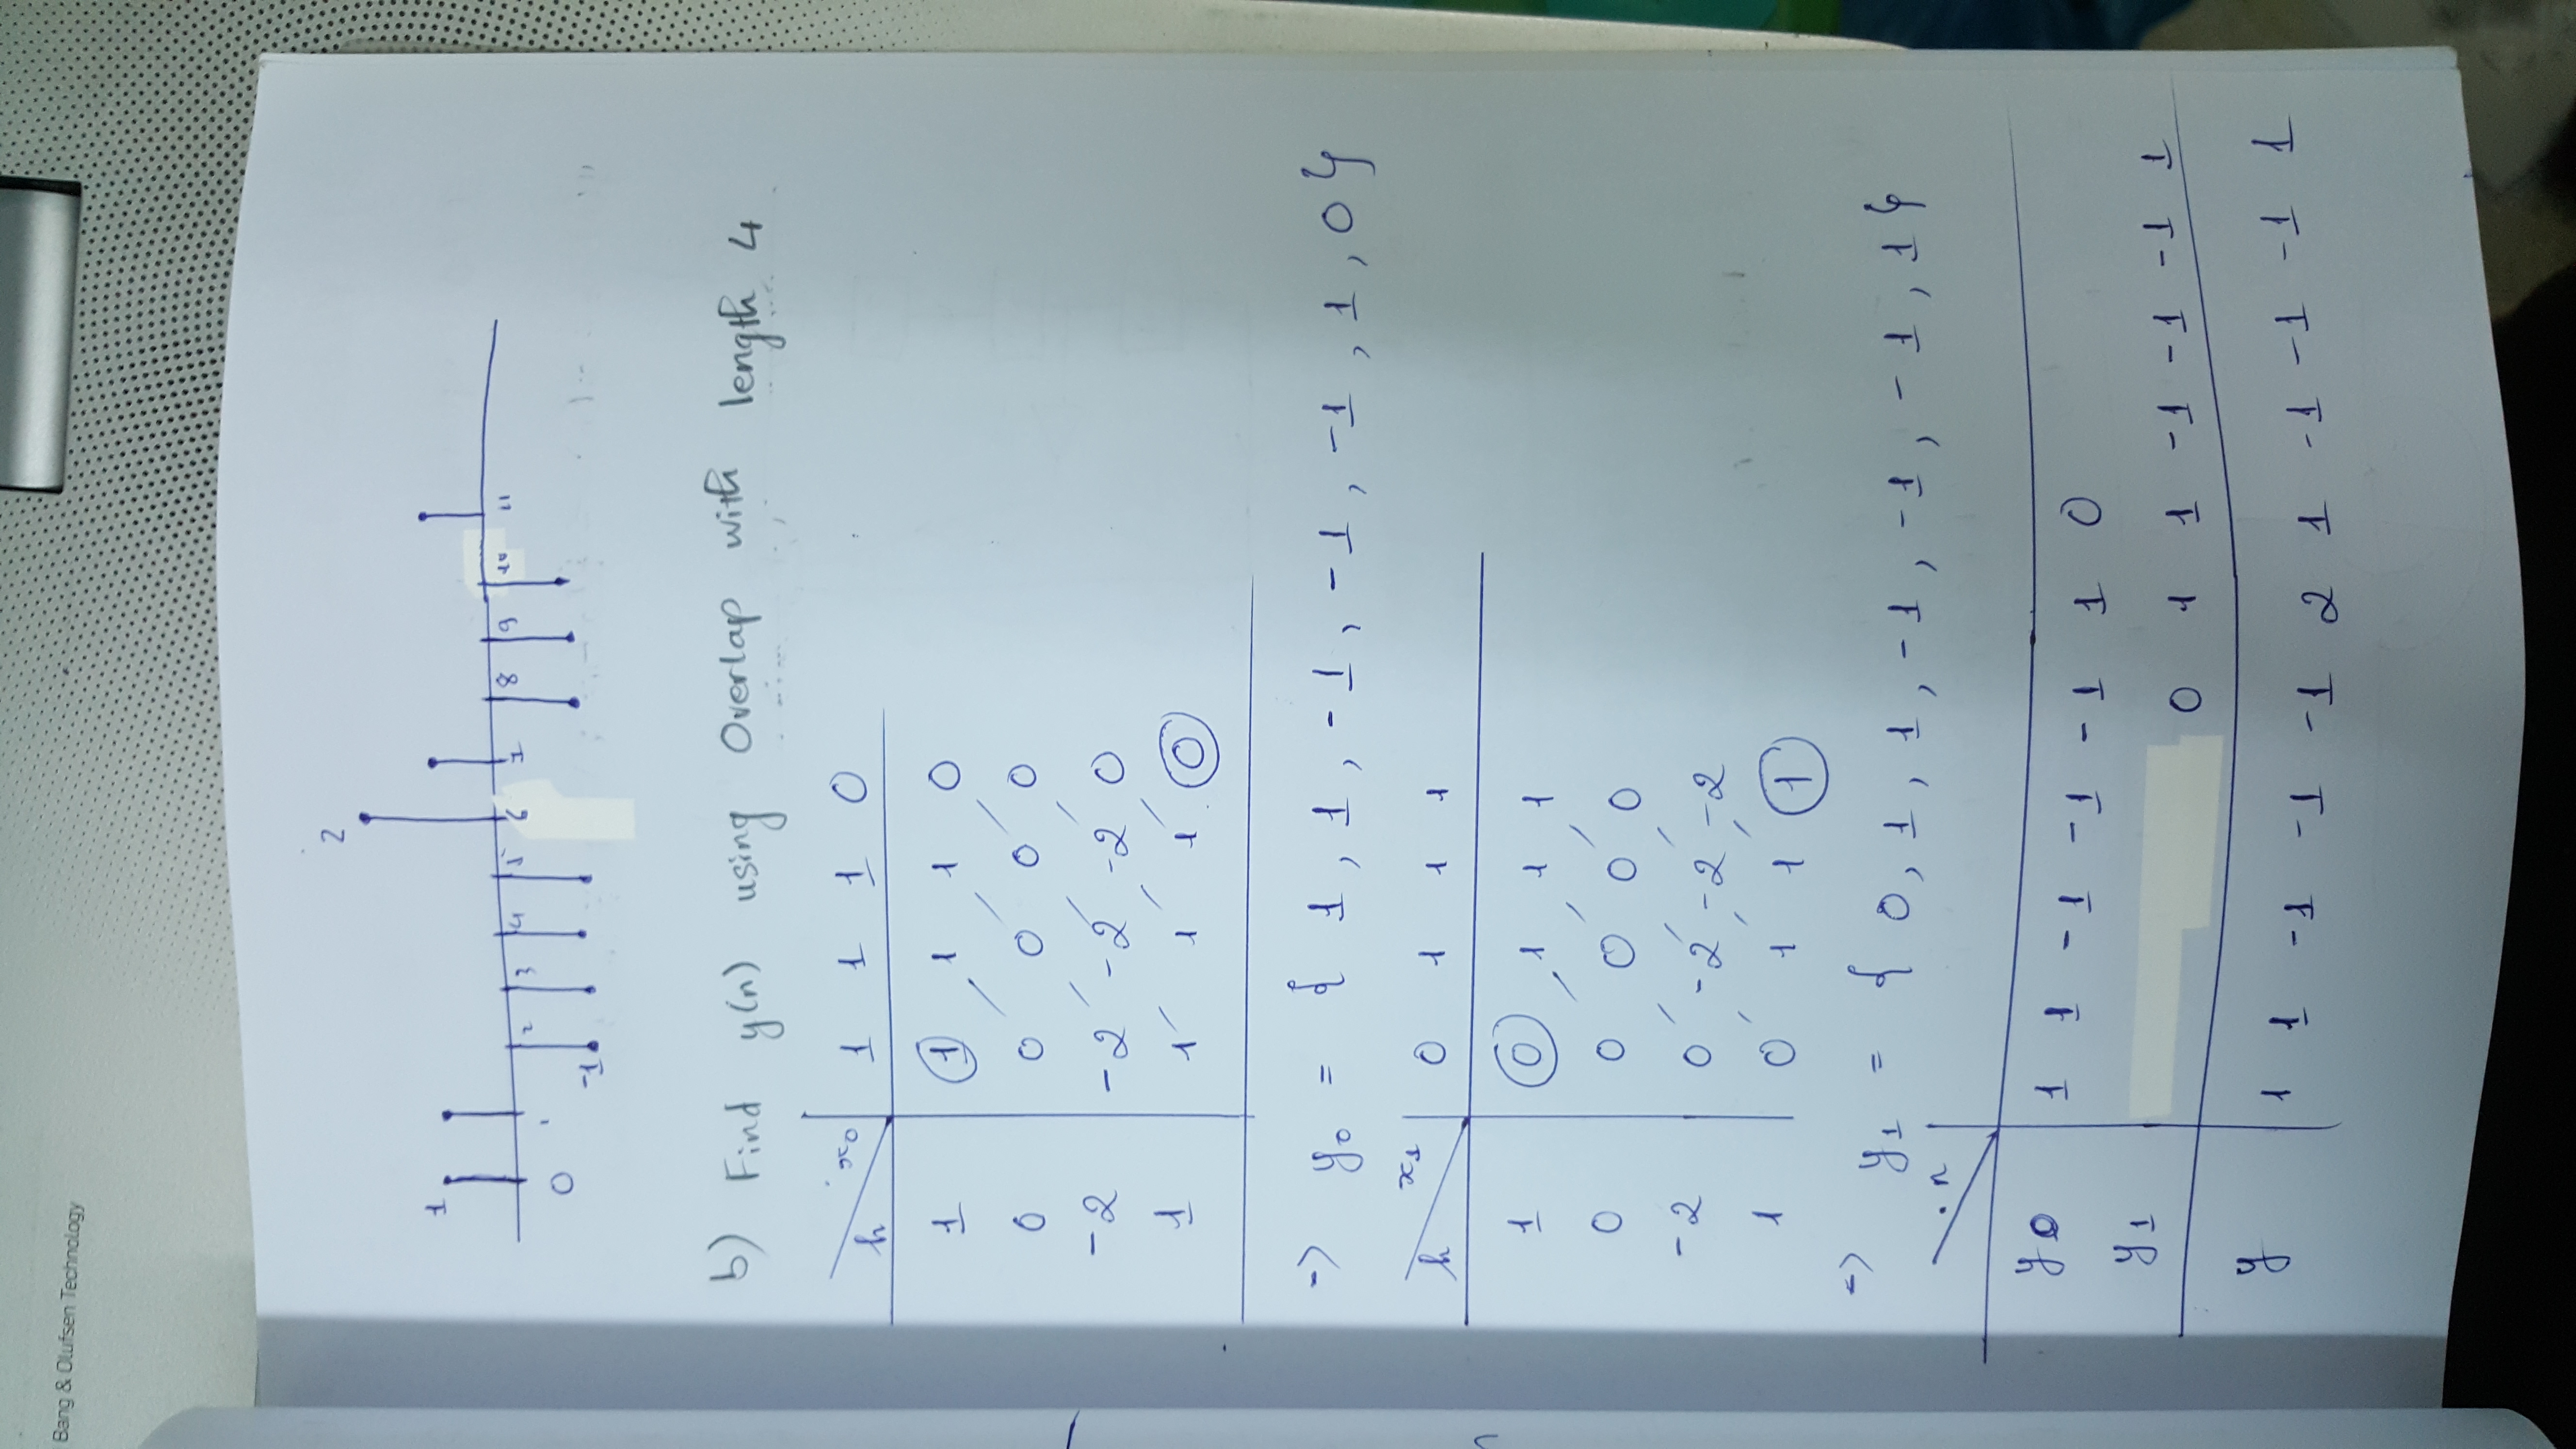 Bang & Olufsen Technology
2
1
0 1 2 3 4 5 6 7 8 9 10 11
-1
b) Find y(n) using Overlap with length 4
h x0 1 1 1 0
1 1 1 1 0
0 0 0 0 0
-2 -2 -2 -2 0
1 1 1 1 0
-> y0 = { 1, 1, -1, -1, -1, 1, 0}
h x1 0 1 1 1
1 0 1 1 1
0 0 0 0 0
-2 0 -2 -2 -2
1 0 1 1 1
=> y1 = { 0, 1, 1, -1, -1, -1, 1}
n
y0 1 1 -1 -1 -1 1 0
y1 0 1 1 -1 -1 -1 1
y 1 1 -1 -1 -1 2 1 -1 -1 -1 1